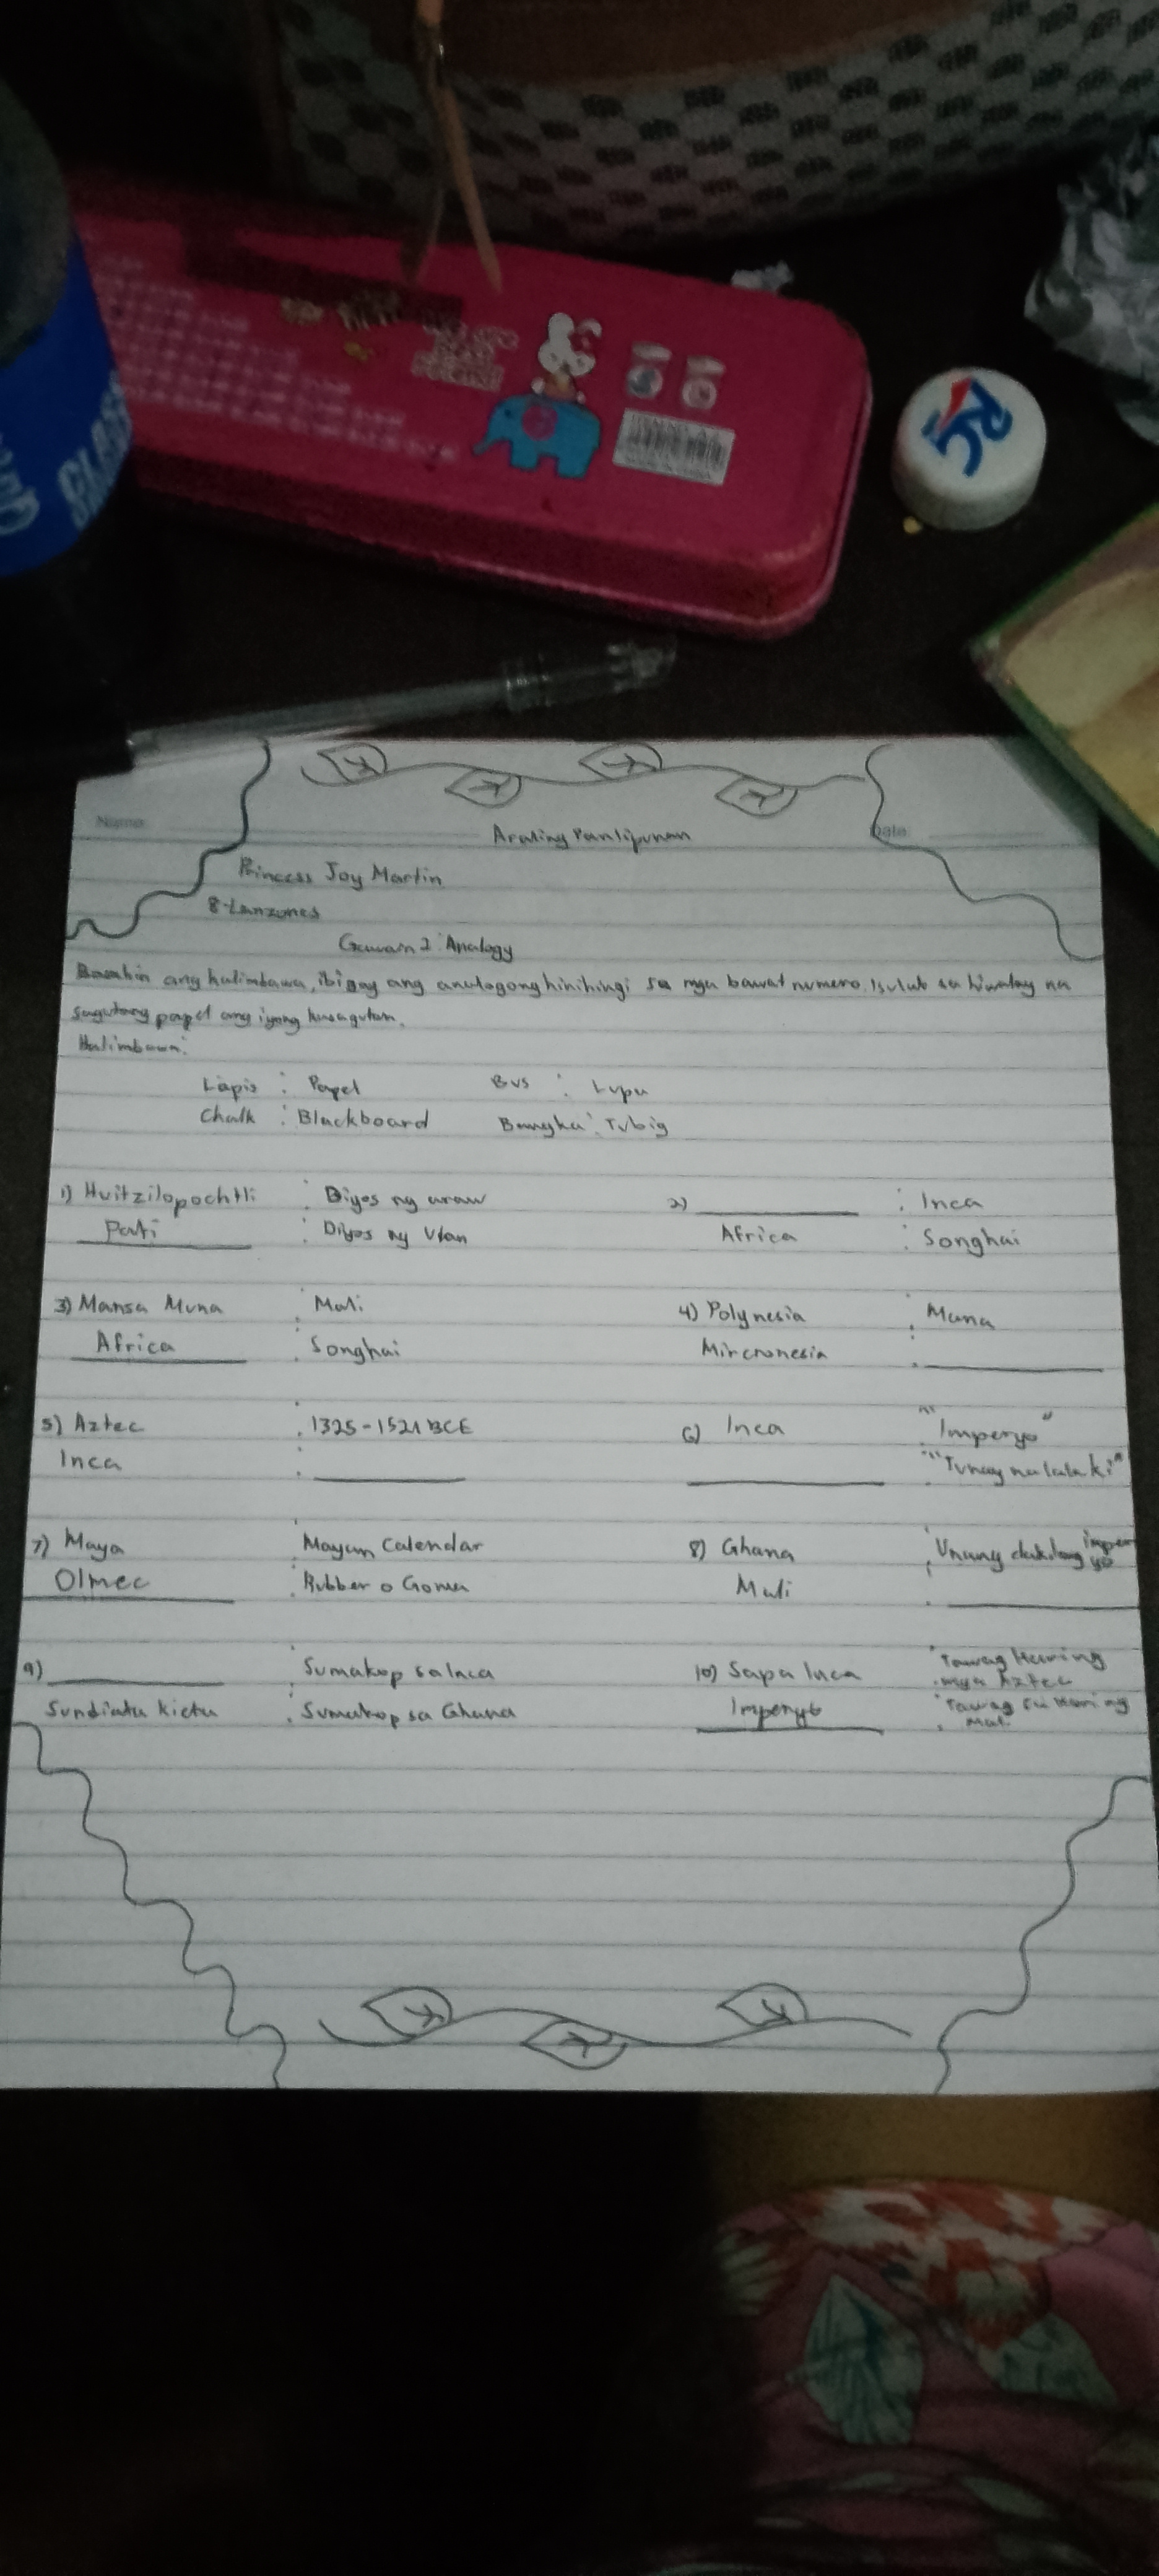 Name
Date
Araling Panlipunan
Princess Joy Martin
8-Lanzones
Gawain 2: Analogy
Basahin ang halimbawa, ibigay ang analogong hinihingi sa mga bawat numero. Isulat sa hiwalay na
sagutang papel ang iyong kasagutan.
Halimbawa:
Lapis : Papel Bus : Lupa
Chalk : Blackboard Bangka : Tubig
1) Huitzilopochtli : Diyos ng araw 2) ____________ : Inca
Pati : Diyos ng Ulan Africa : Songhai
3) Mansa Muna : Mali 4) Polynesia : Mana
Africa : Songhai Mircronesia : ____________
5) Aztec : 1325-1521 BCE 6) Inca : "Imperyo"
Inca : ____________ ____________ : "Tunay na lalaki"
7) Maya : Mayan Calendar 8) Ghana : Unang dakilang imperyo
Olmec : Rubber o Goma Mali : ____________
9) ____________ : Sumakop sa Inca 10) Sapa Inca : Tawag Haring mga Aztec
Sundiata Kieta : Sumakop sa Ghana Imperyo : Tawag sa Hari ng Mali